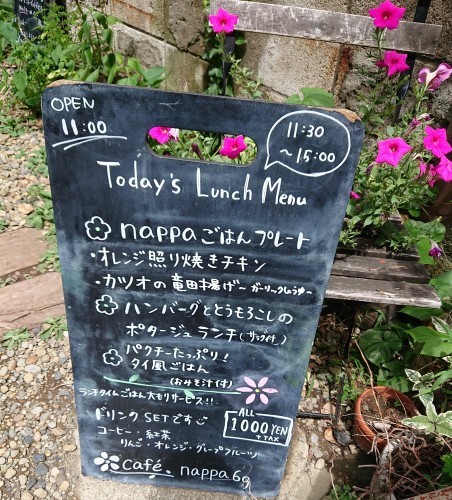 OPEN
11:00
11:30
~15:00
Today's Lunch Menu
nappaごはんプレート
・オレンジ照り焼きチキン
・カツオの竜田揚げ~ガーリックしょうゆ~
ハンバーグととうもろこしの
ポタージュランチ(サラダ付)
パクチーたっぷり!
タイ風ごはん
(おみそ汁付)
ランチタイムごはん大もりサービス!!
ドリンクSETです
コーヒー・紅茶
りんご・オレンジ・グレープフルーツ
ALL
1000YEN
+TAX
café nappa69